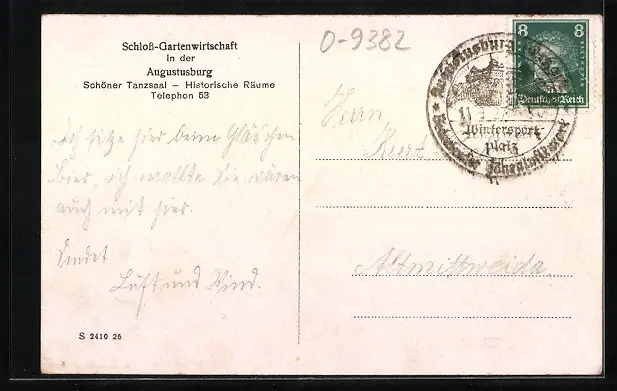 Schloß-Gartenwirtschaft
in der
Augustusburg
Schöner Tanzsaal — Historische Räume
Telephon 53
O-9382
8 8
Deutsches Reich
Wintersport-
platz
Herrn
Kurt
Altmittweida
Ich sitze hier beim Gläschen
Bier, ich wollte Sie wären
auch mit hier.
Sendet
Luft und Wind.
S 2410 26